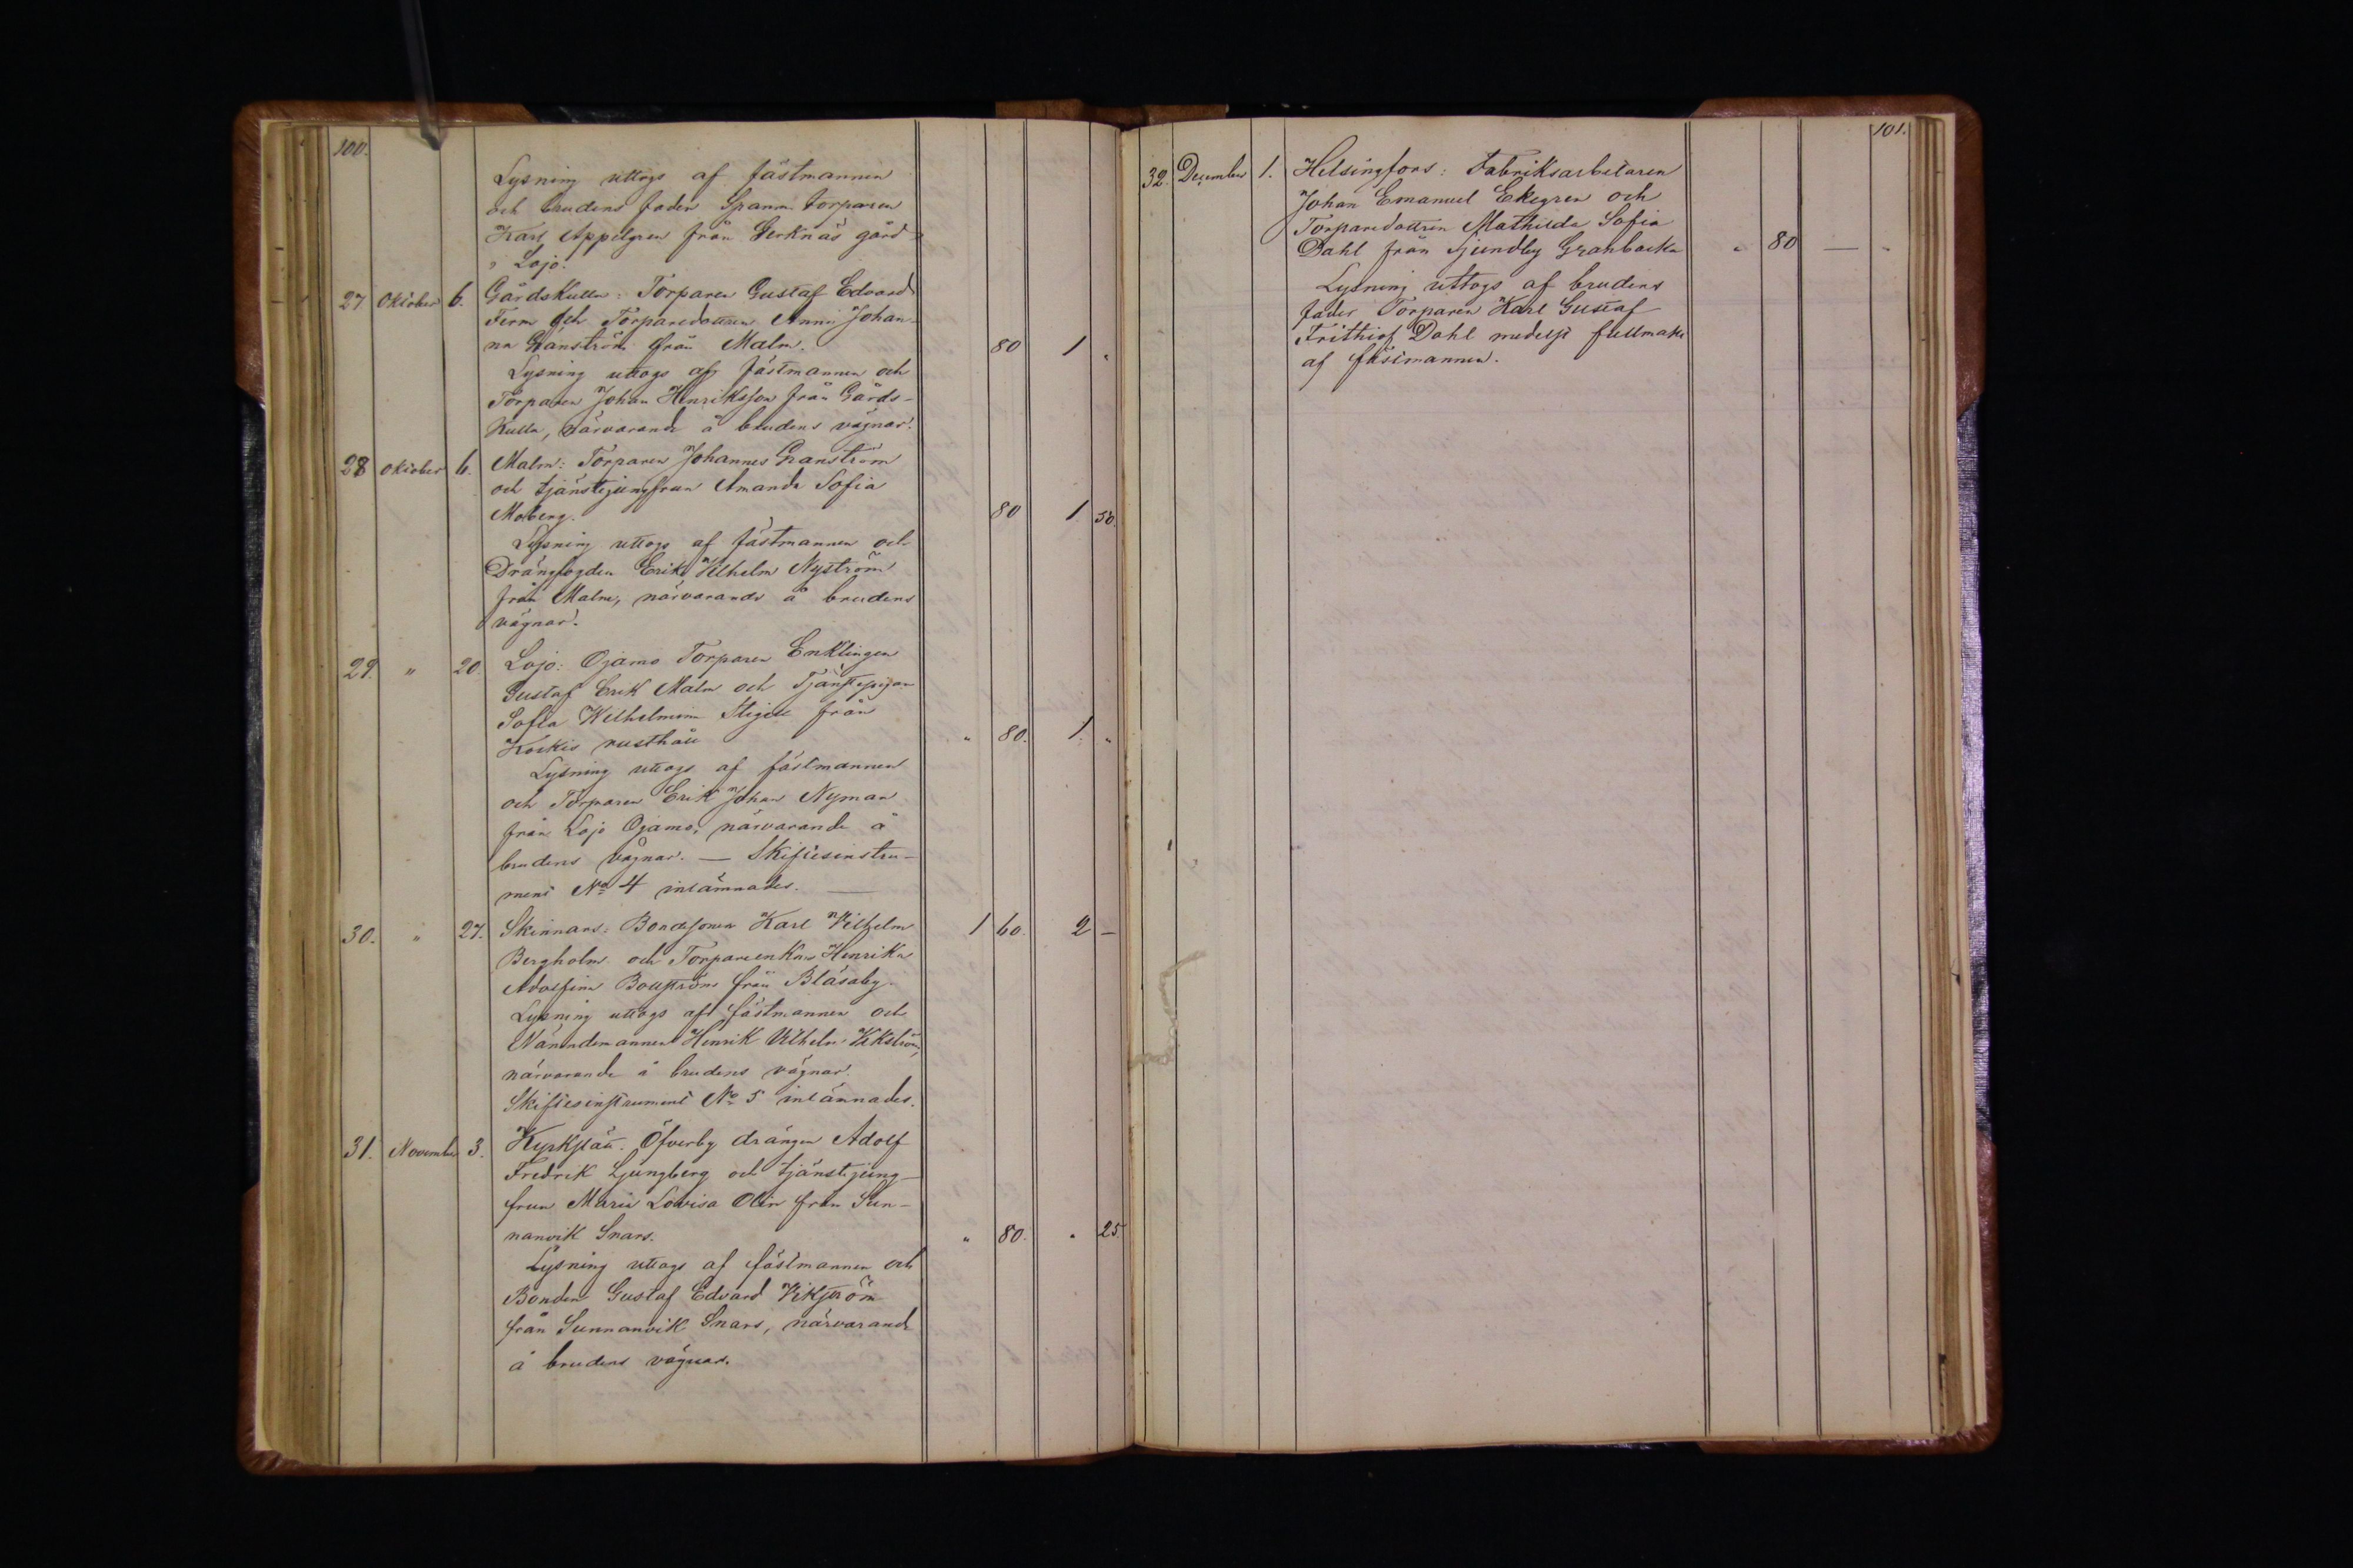 100.
Lysning uttogs af fästmannen
och brudens fader Spanm. torparen
Karl Appelgren från Gerknäs gård
i Lojo.
27 Oktober 6. Gårdskulla: Torparen Gustaf Edvard
Ferm och Torparedottren Anna Johan-
na Granström från Malm. 80 1 "
Lysning uttogs af fästmannen och
Torparen Johan Henriksson från Gårds-
kulla, närvarande å brudens vägnar.
28 Oktober 6. Malm: Torparen Johannes Granström
och tjänstejungfrun Amanda Sofia
Moberg. 80 1 50.
Lysning uttogs af fästmannen och
Drängfogden Erik Vilhelm Nyström
från Malm, närvarande å brudens
vägnar.
29. " 20. Lojo: Ojamo Torparen Enklingen
Gustaf Erik Malm och Tjänstepigan
Sofia Wilhelmina Stigell från
Korkis rusthåll " 80. 1. "
Lysning uttogs af fästmannen
och Torparen Erik Johan Nyman
från Lojo Ojamo, närvarande å
brudens vägnar. — Skiftesinstru-
ment No 4 inlämnades. —
30. " 27. Skinnars: Bondesonen Karl Vilhelm 1 60. 2 —
Bergholm och Torpareenkan Henrika
Adolfina Boström från Blåsaby.
Lysning uttogs af fästmannen och
Nämndemannen Henrik Vilhelm Vikström,
närvarande å brudens vägnar.
Skiftesinstrument No 5 inlämnades.
31. November 3. Kyrkslätt. Öfverby drängen Adolf
Fredrik Ljungberg och tjänstejung-
frun Maria Lovisa Olin från Sun-
nanvik Snars. " 80. " 25.
Lysning uttogs af fästmannen och
Bonden Gustaf Edvard Vikström
från Sunnanvik Snars, närvarande
å brudens vägnar.
101.
32. December 1. Helsingfors: Fabriksarbetaren
Johan Emanuel Ekegren och
Torparedottren Mathilda Sofia
Dahl från Sjundby Granbacka " 80 — "
Lysning uttogs af brudens
fader Torparen Karl Gustaf
Frithiof Dahl medelst fullmakt
af fästmannen.